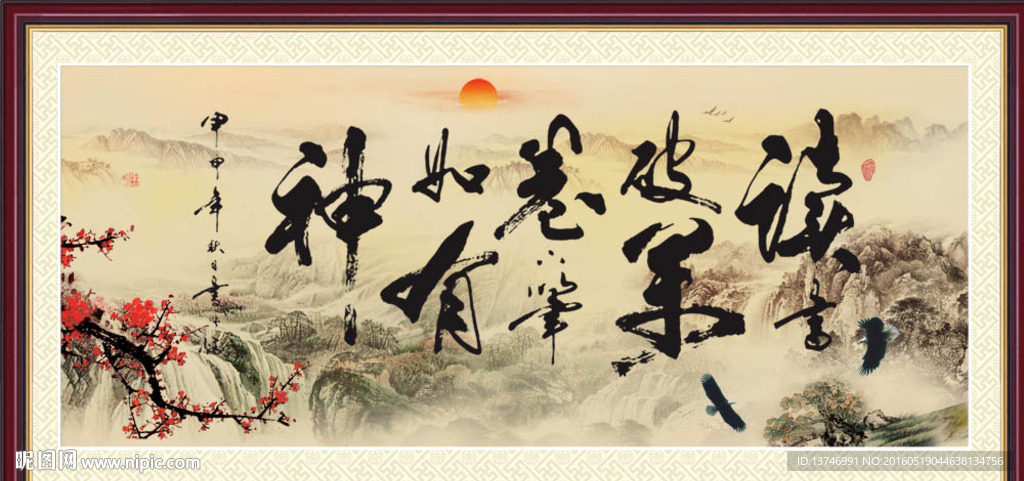 讀書
破萬
卷下筆
如有
神
甲申年秋月書
昵图网 www.nipic.com
ID:13746991 NO:20160519044638134756